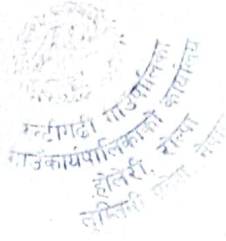 रुन्टीगढी गाउँपालिका
गाउँकार्यपालिकाको कार्यालय
होलेरी, रोल्पा
लुम्बिनी प्रदेश नेपाल